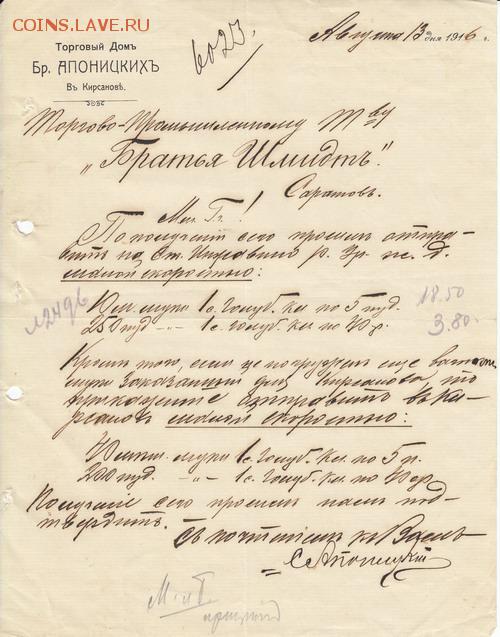 COINS.LAVE.RU
Торговый Домъ
Бр. АПОНИЦКИХЪ
Въ Кирсановѣ.
6023.
Августа 13 дня 1916 г.
Торгово-Промышленному Тву
„Братья Шмидтъ".
Саратовъ.
Мил. Гг!
По полученіи сего просимъ отпра-
вить на ст. р. Ур. ж. д.
малой скоростью:
муки 1с. голуб. кл. по 5 пуд. 18.50
250 пуд -"- 1с. голуб. кл. по 3.80
12496
Кромѣ того, если не погружен еще
муки для Кирсанова то
отправить въ Кир-
сановъ малой скоростью:
муки 1с. голуб. кл. по 5 п.
200 пуд. -"- 1с. голуб. кл. по
Полученіе сего просимъ намъ под-
твердить.
Съ почтеніемъ къ Вамъ
С Апоницкій
М. и Т.